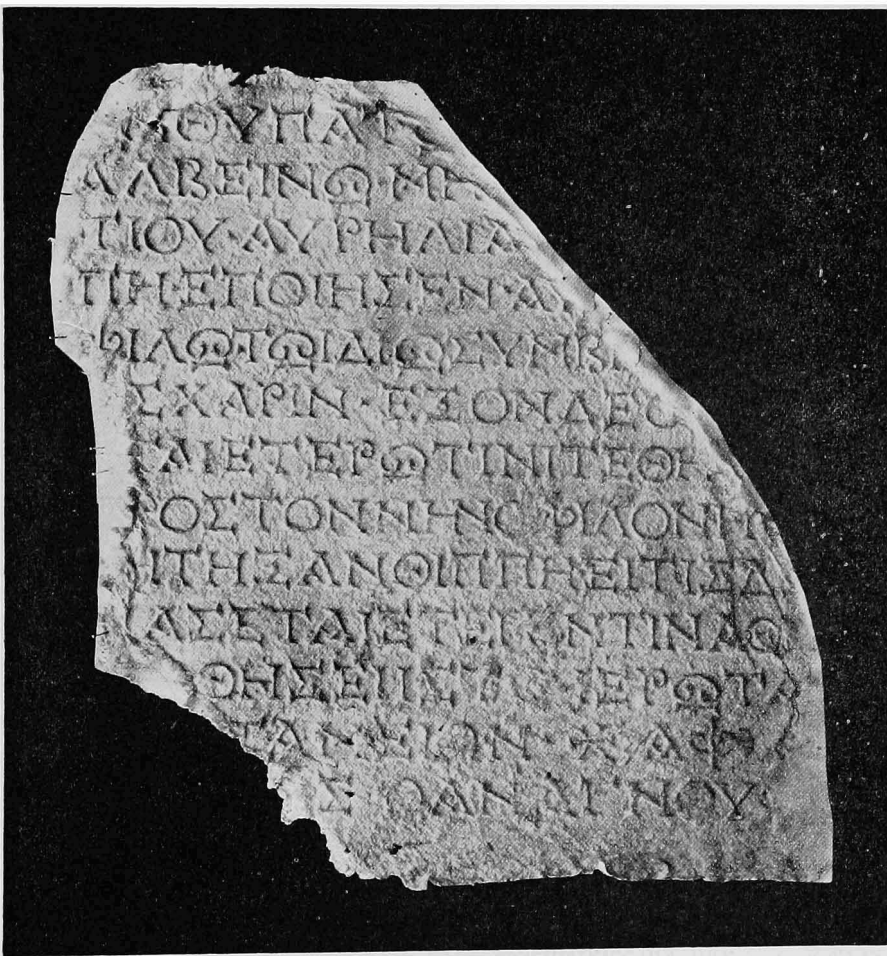 ΝΘΥΠΑΤ
ΑΛΒΕΙΝΩ·ΜΗ
ΤΙΟΥ·ΑΥΡΗΛΙΑ
ΠΗ·ΕΠΟΙΗΣΕΝ·ΑΥ
ΦΙΛΩ·ΤΩΙΔΙΩΣΥΝΒΙ
ΣΧΑΡΙΝ·ΕΞΟΝΔΕΟ
ΑΙΕΤΕΡΩΤΙΝΙΤΕΘΗ
ΡΟΣΤΟΝΝΗΝΟΦΙΛΟΝΗ
ΙΤΗΞΑΝΘΙΠΠΗΕΙΤΙΣΔ
ΑΣΕΤΑΙΕΤΕΡΟΝΤΙΝΑΘ
ΘΗΣΕΙΙΣΤΑΙΕΡΩΤΑ
ΤΑΜΕΙΟΝ·ΧΑΦ
Σ ΘΑΝΑΙΝΟΥ